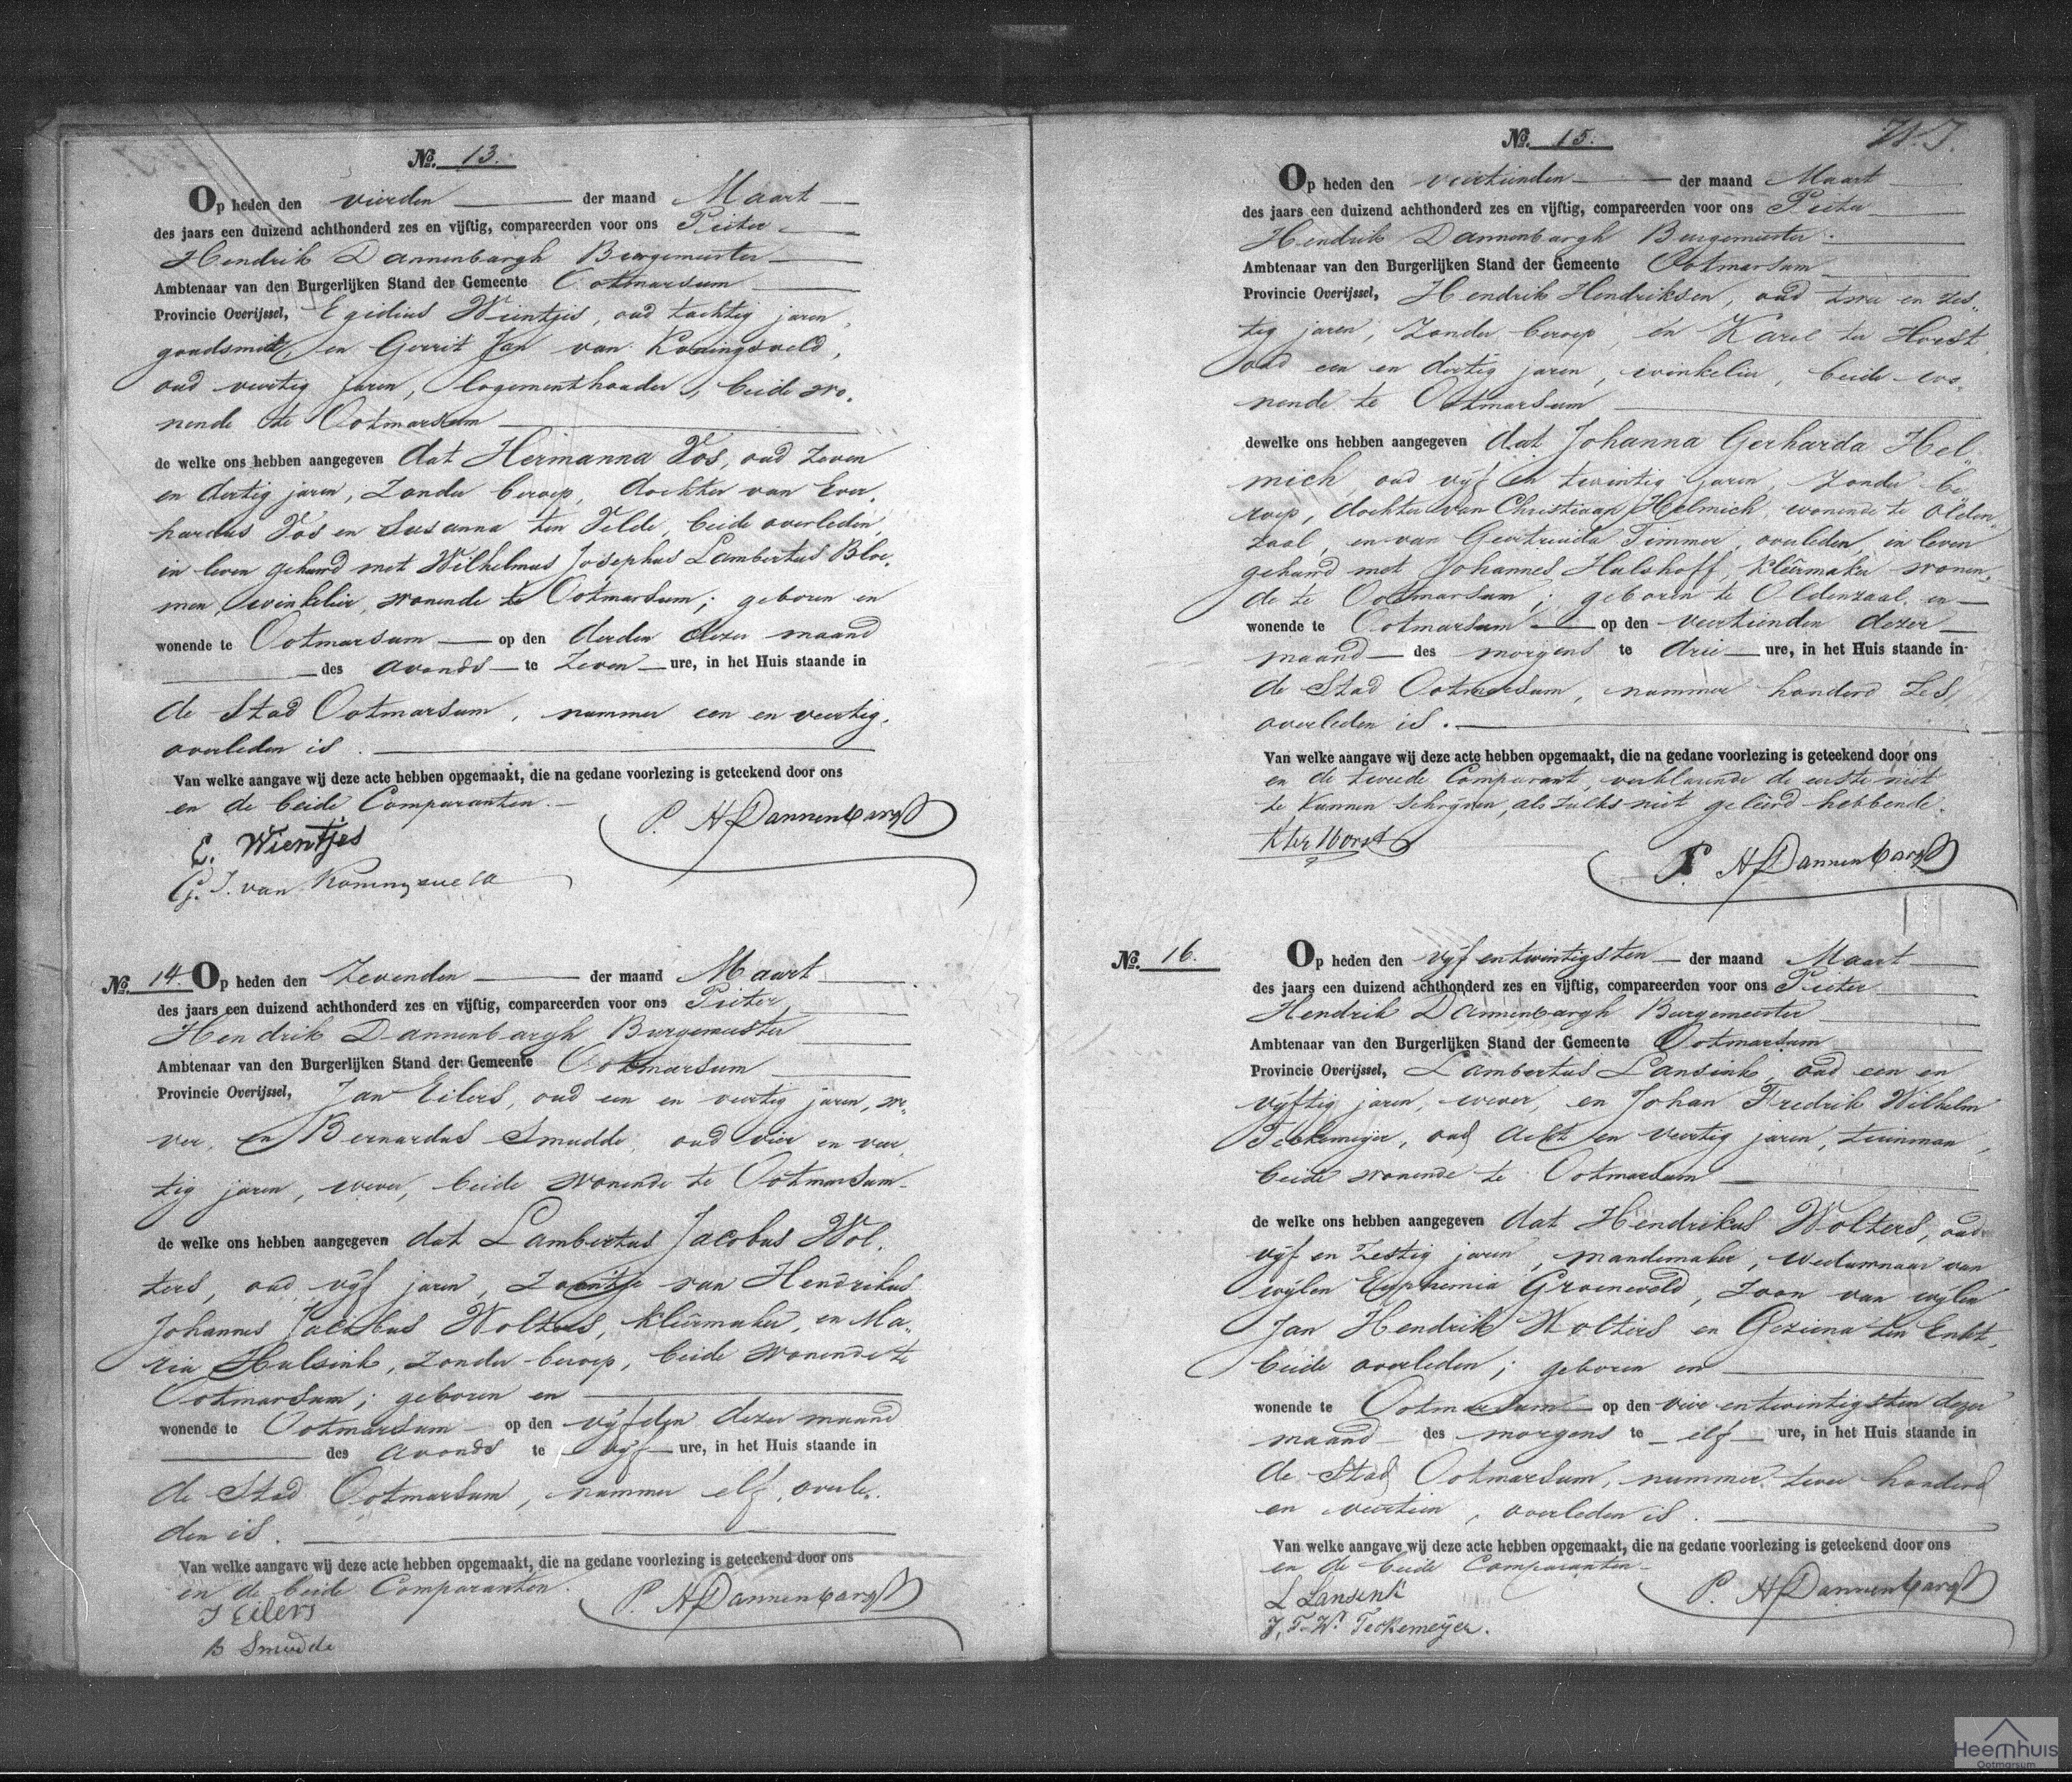 No. 13.
Op heden den vierden der maand Maart
des jaars een duizend achthonderd zes en vijftig, compareerden voor ons Pieter
Hendrik Dannenbargh Burgemeester
Ambtenaar van den Burgerlijken Stand der Gemeente Ootmarsum
Provincie Overijssel, Egidius Wientjes, oud tachtig jaren,
goudsmit, en Gerrit Jan van Koningsveld,
oud veertig jaren, logementhouder, beide wo„
nende te Ootmarsum
de welke ons hebben aangegeven dat Hermanna Vos, oud zeven
en dertig jaren, zonder beroep, dochter van Ever„
hardus Vos en Susanna ten Velde, beide overleden,
in leven gehuwd met Wilhelmus Josephus Lambertus Bloe„
men, winkelier, wonende te Ootmarsum; geboren en
wonende te Ootmarsum op den derden dezer maand
des avonds te zeven ure, in het Huis staande in
de Stad Ootmarsum, nummer een en veertig,
overleden is.
Van welke aangave wij deze acte hebben opgemaakt, die na gedane voorlezing is geteekend door ons
en de beide Comparanten.
P. H Dannenbargh
E. Wientjes
G. J. van Koningsveld
No. 14. Op heden den zevenden der maand Maart
des jaars een duizend achthonderd zes en vijftig, compareerden voor ons Pieter
Hendrik Dannenbargh Burgemeester
Ambtenaar van den Burgerlijken Stand der Gemeente Ootmarsum
Provincie Overijssel, Jan Eilers, oud een en veertig jaren, we„
ver, en Bernardus Smudde, oud vier en veer„
tig jaren, wever, beide wonende te Ootmarsum
de welke ons hebben aangegeven dat Lambertus Jacobus Wol„
ters, oud vijf jaren, zoontje van Hendrikus
Johannes Jacobus Wolters, kleermaker, en Ma„
ria Hulsink, zonder beroep, beide wonende te
Ootmarsum; geboren en
wonende te Ootmarsum op den vijfden dezer maand
des avonds te vijf ure, in het Huis staande in
de Stad Ootmarsum, nummer elf, overle„
den is.
Van welke aangave wij deze acte hebben opgemaakt, die na gedane voorlezing is geteekend door ons
en de beide Comparanten.
P. H Dannenbargh
J Eilers
B Smudde
No. 15.
Op heden den veertienden der maand Maart
des jaars een duizend achthonderd zes en vijftig, compareerden voor ons Pieter
Hendrik Dannenbargh Burgemeester
Ambtenaar van den Burgerlijken Stand der Gemeente Ootmarsum
Provincie Overijssel, Hendrik Hendriksen, oud twee en zes„
tig jaren, zonder beroep, en Karel ter Horst
oud een en dertig jaren, winkelier, beide wo„
nende te Ootmarsum
dewelke ons hebben aangegeven dat Johanna Gerharda Hel„
mich, oud vijf en twintig jaren, zonder be„
roep, dochter van Christiaan Helmich, wonende te Olden„
zaal, en van Geertruida Timmer, overleden, in leven
gehuwd met Johannes Hulshoff, kleermaker wonen„
de te Ootmarsum; geboren te Oldenzaal en
wonende te Ootmarsum op den veertienden dezer
maand des morgens te drie ure, in het Huis staande in
de Stad Ootmarsum, nummer honderd zes,
overleden is.
Van welke aangave wij deze acte hebben opgemaakt, die na gedane voorlezing is geteekend door ons
en de tweede Comparant, verklarende de eerste niet
te kunnen schrijven, als zulks niet geleerd hebbende.
K ter Horst
P. H Dannenbargh
No. 16.
Op heden den vijf en twintigsten der maand Maart
des jaars een duizend achthonderd zes en vijftig, compareerden voor ons Pieter
Hendrik Dannenbargh Burgemeester
Ambtenaar van den Burgerlijken Stand der Gemeente Ootmarsum
Provincie Overijssel, Lambertus Lansink, oud een en
vijftig jaren, wever, en Johan Fredrik Wilhelm
Teckemeijer, oud acht en veertig jaren, tuinman,
beide wonende te Ootmarsum
de welke ons hebben aangegeven dat Hendrikus Wolters, oud
vijf en zestig jaren, mandemaker, weduwnaar van
wijlen Euphemia Groeneveld, zoon van wijlen
Jan Hendrik Wolters en Geziena ten Enkt,
beide overleden; geboren en
wonende te Ootmarsum op den vier en twintigsten dezer
maand des morgens te elf ure, in het Huis staande in
de Stad Ootmarsum, nummer twee honderd
en veertien, overleden is.
Van welke aangave wij deze acte hebben opgemaakt, die na gedane voorlezing is geteekend door ons
en de beide Comparanten
P. H Dannenbargh
L Lansink
J. F. W. Teckemeijer.
Heemhuis
Ootmarsum